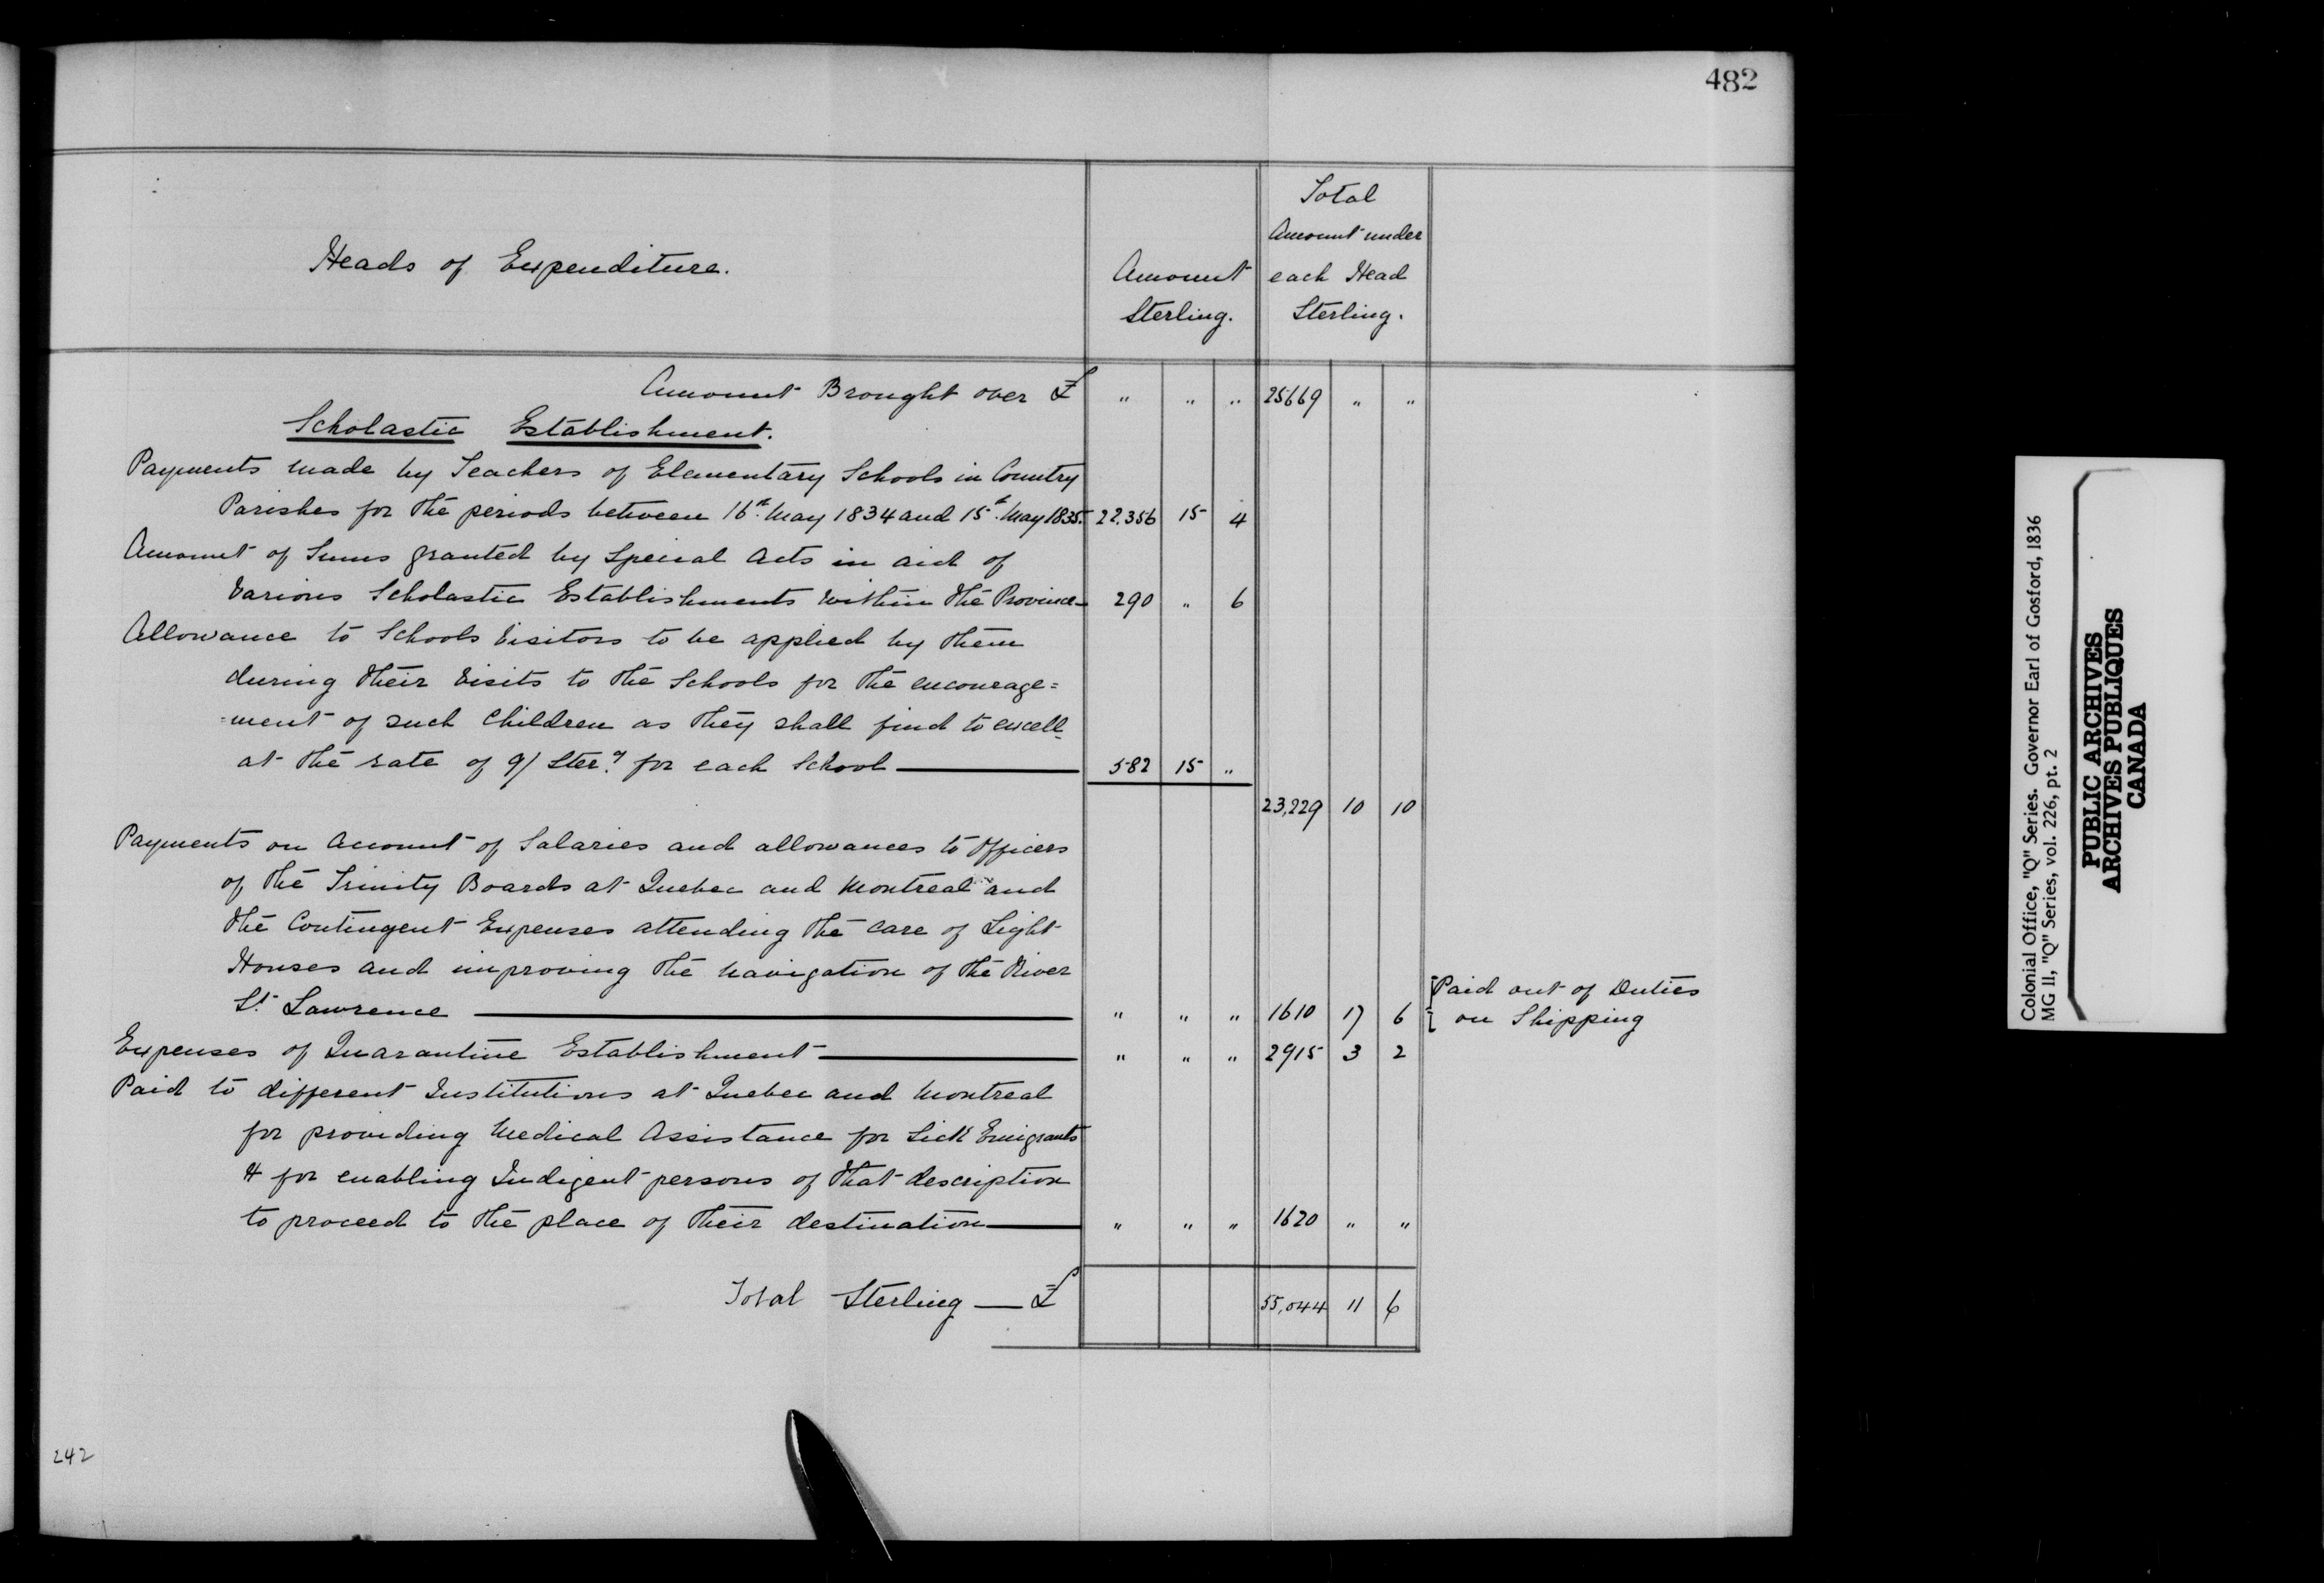 482
Heads of Expenditure.
Amount
Sterling.
Total
Amount under
each Head
Sterling.
Amount Brought over £ " " " 25669 " "
Scholastic Establishment.
Payments made by Teachers of Elementary Schools in Country
Parishes for the periods between 16th. May 1834 and 15th. May 1835. 22,356 15 4
Amount of Sums granted by Special Acts in aid of
Various Scholastic Establishments within the Province 290 " 6
Allowance to Schools Visitors to be applied by them
during their visits to the Schools for the encourage=
=ment of such Children as they shall find to excell
at the rate of 9/ Sterg. for each School 582 15 "
23,229 10 10
Payments on Account of Salaries and allowances to Officers
of the Trinity Boards at Quebec and Montreal and
the Contingent Expenses attending the care of Light
Houses and improving the navigation of the River
St. Lawrence " " " 1610 17 6 Paid out of Duties
on Shipping
Expenses of Quarantine Establishment " " " 2915 3 2
Paid to different Institutions at Quebec and Montreal
for providing Medical Assistance for Sick Emigrants
& for enabling Indigent persons of that description
to proceed to the place of their destination " " " 1620 " "
Total Sterling — £ 55,044 11 6
242
Colonial Office, "Q" Series. Governor Earl of Gosford, 1836
MG 11, "Q" Series, vol. 226, pt. 2
PUBLIC ARCHIVES
ARCHIVES PUBLIQUES
CANADA